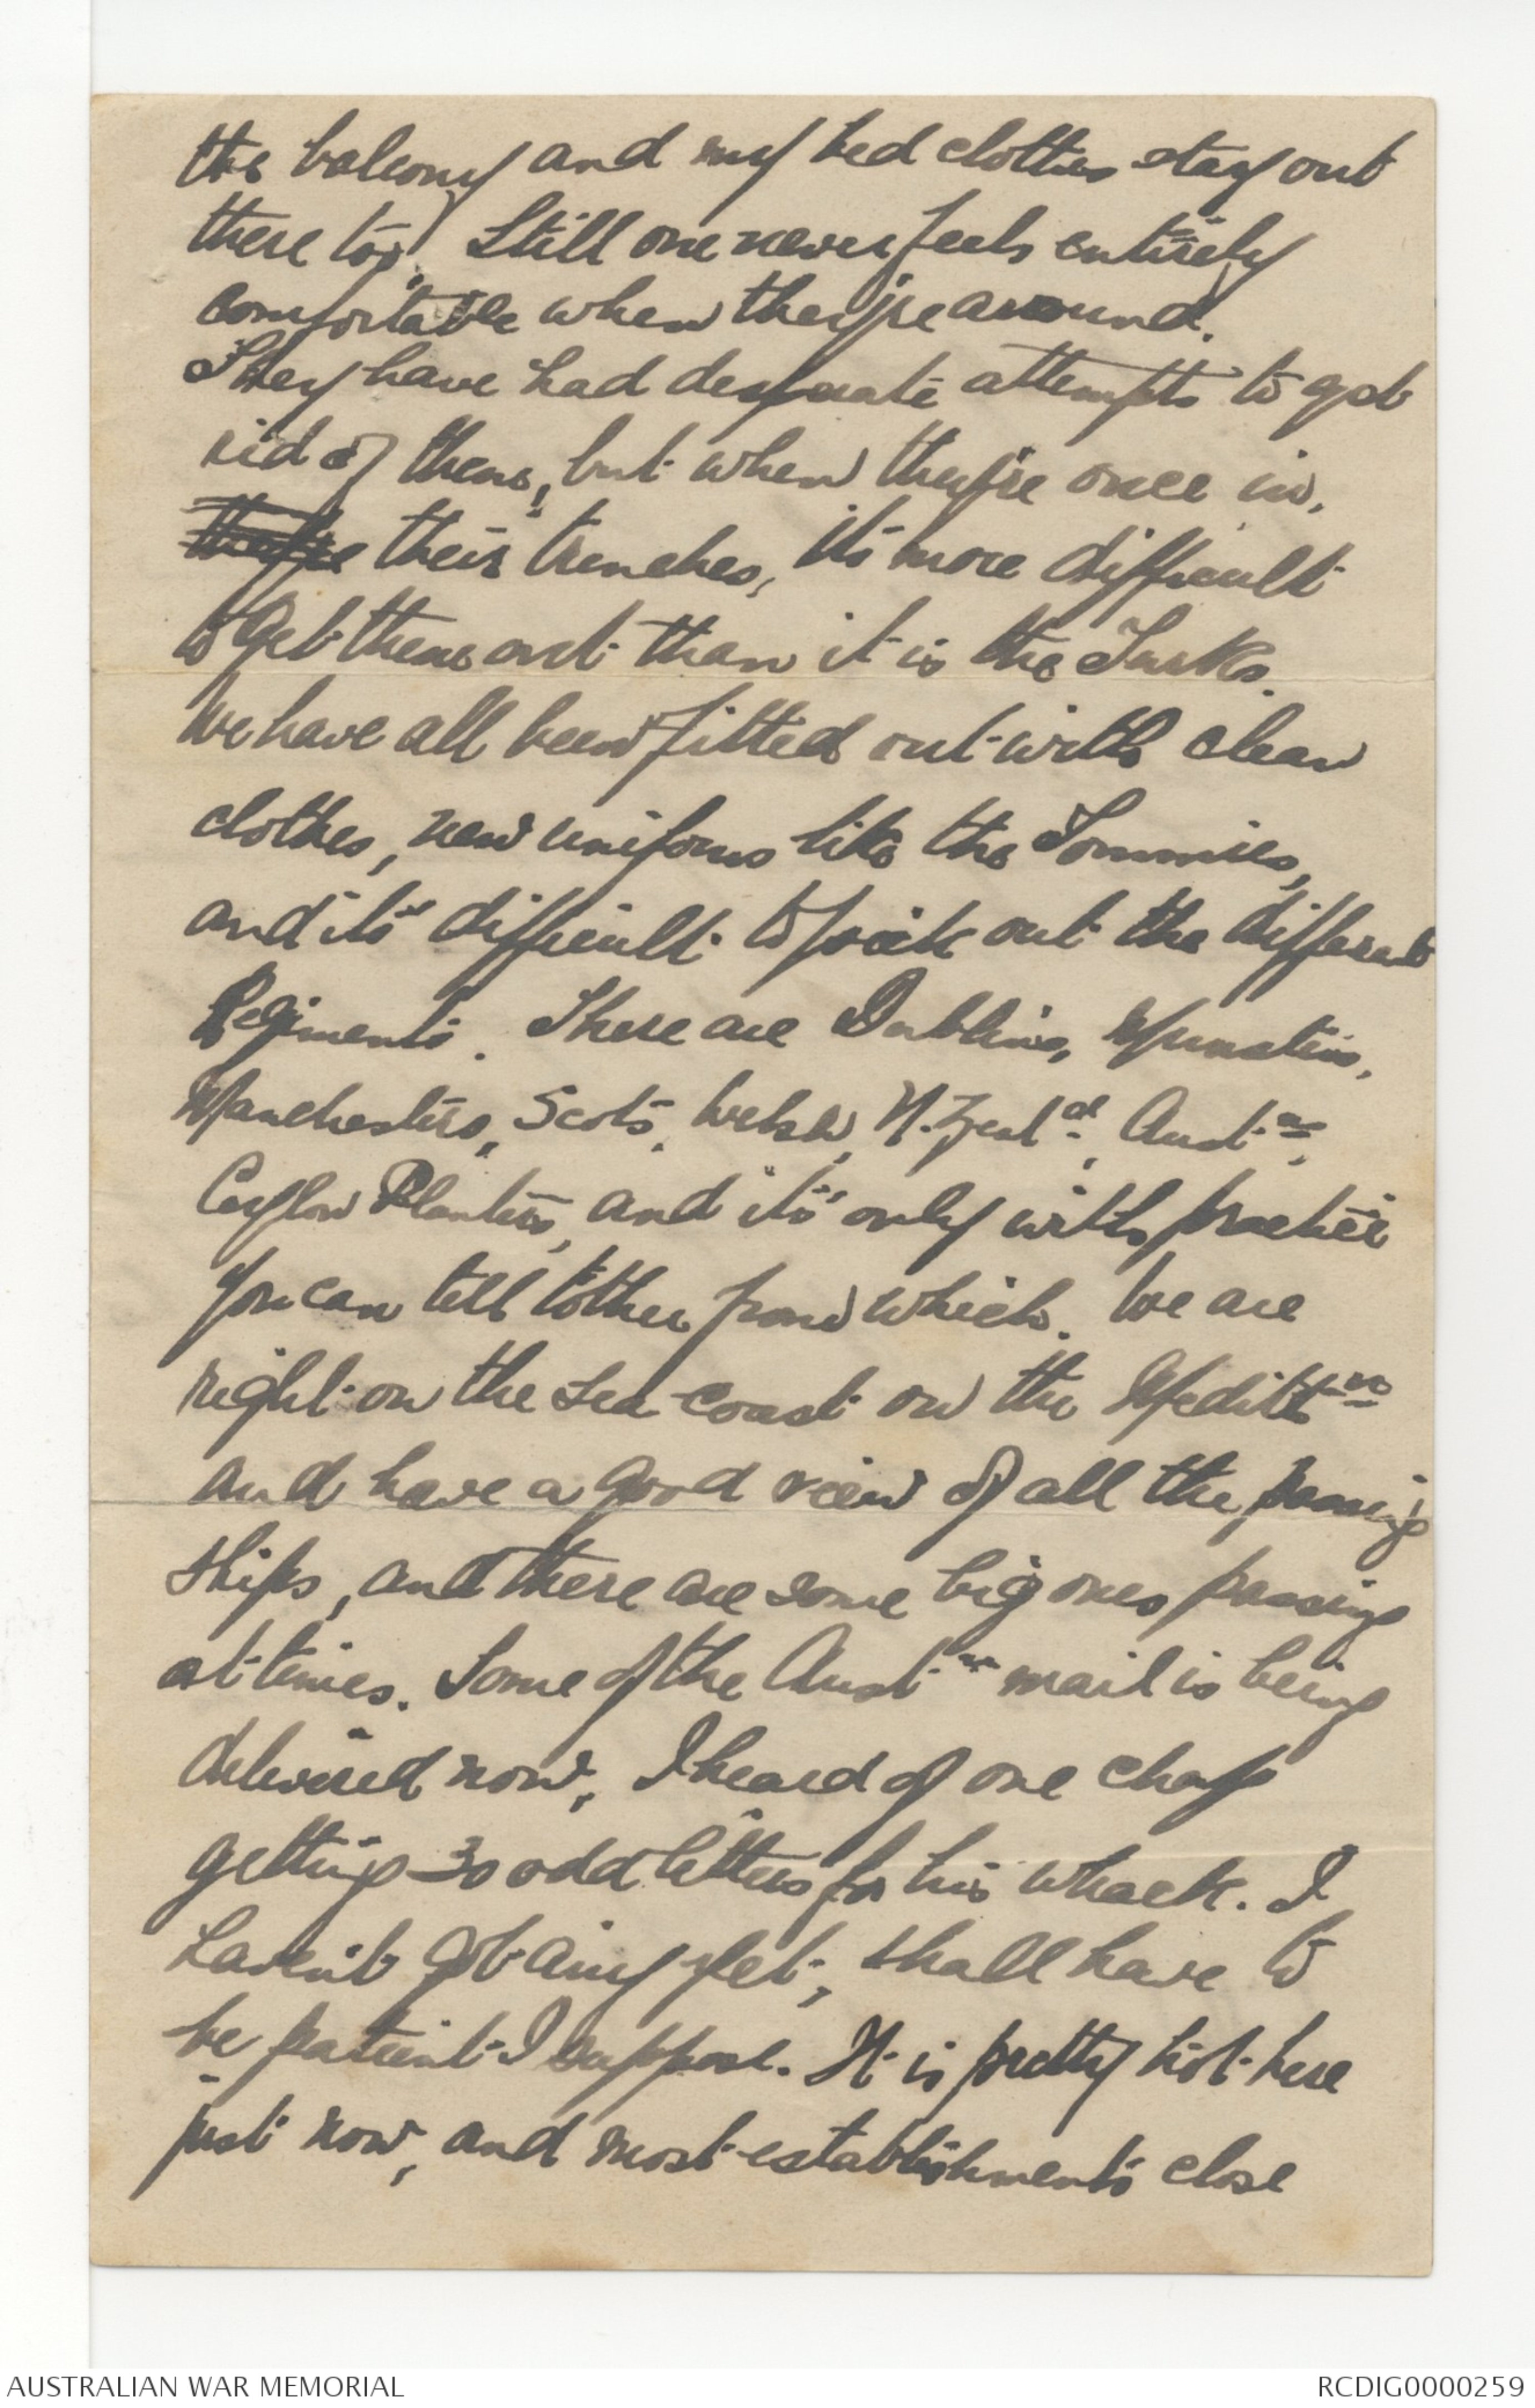 the balcony and my bed clothes stay out
there too! Still one never feels entirely
comfortable when they're around.
They have had desperate attempts to get
rid of them, but when they're once in,
they're their trenches, it's more difficult
to get them out than it is the Turks.
We have all been fitted out with clean
clothes, new uniforms like the Tommies,
and it's difficult to pick out the different
Regiments. There are Dublins, Munsters,
Manchesters, Scots, Welsh, N. Zeald, Austns,
Ceylon Planters, and it's only with practice
you can tell t'other from which. We are
right on the sea coast on the Medittn
and have a good view of all the passing
ships, and there are some big ones passing
at times. Some of the Austn mail is being
delivered now, I heard of one chap
getting 30 odd letters for his whack. I
haven't got any yet, shall have to
be patient I suppose. It is pretty hot here
just now, and most establishments close
AUSTRALIAN WAR MEMORIAL
RCDIG0000259